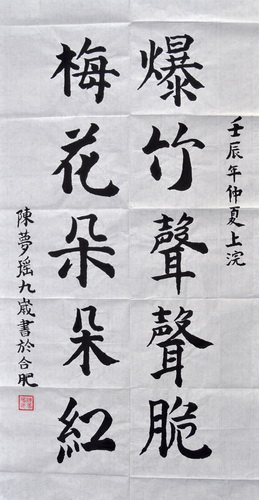 壬辰年仲夏上浣
爆竹聲聲脆
梅花朵朵紅
陳夢瑶九歲書於合肥